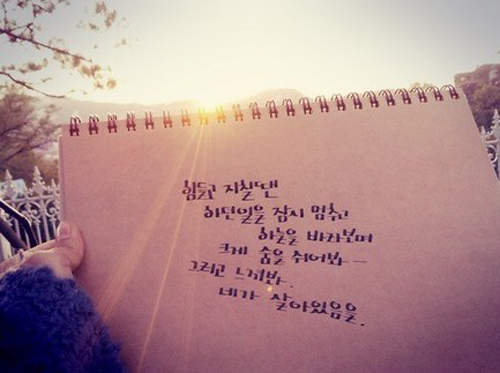 힘들고 지칠땐
하던일을 잠시 멈추고
하늘을 바라보며
크게 숨을 쉬어봐 –
그리고 느껴봐.
네가 살아있음을.